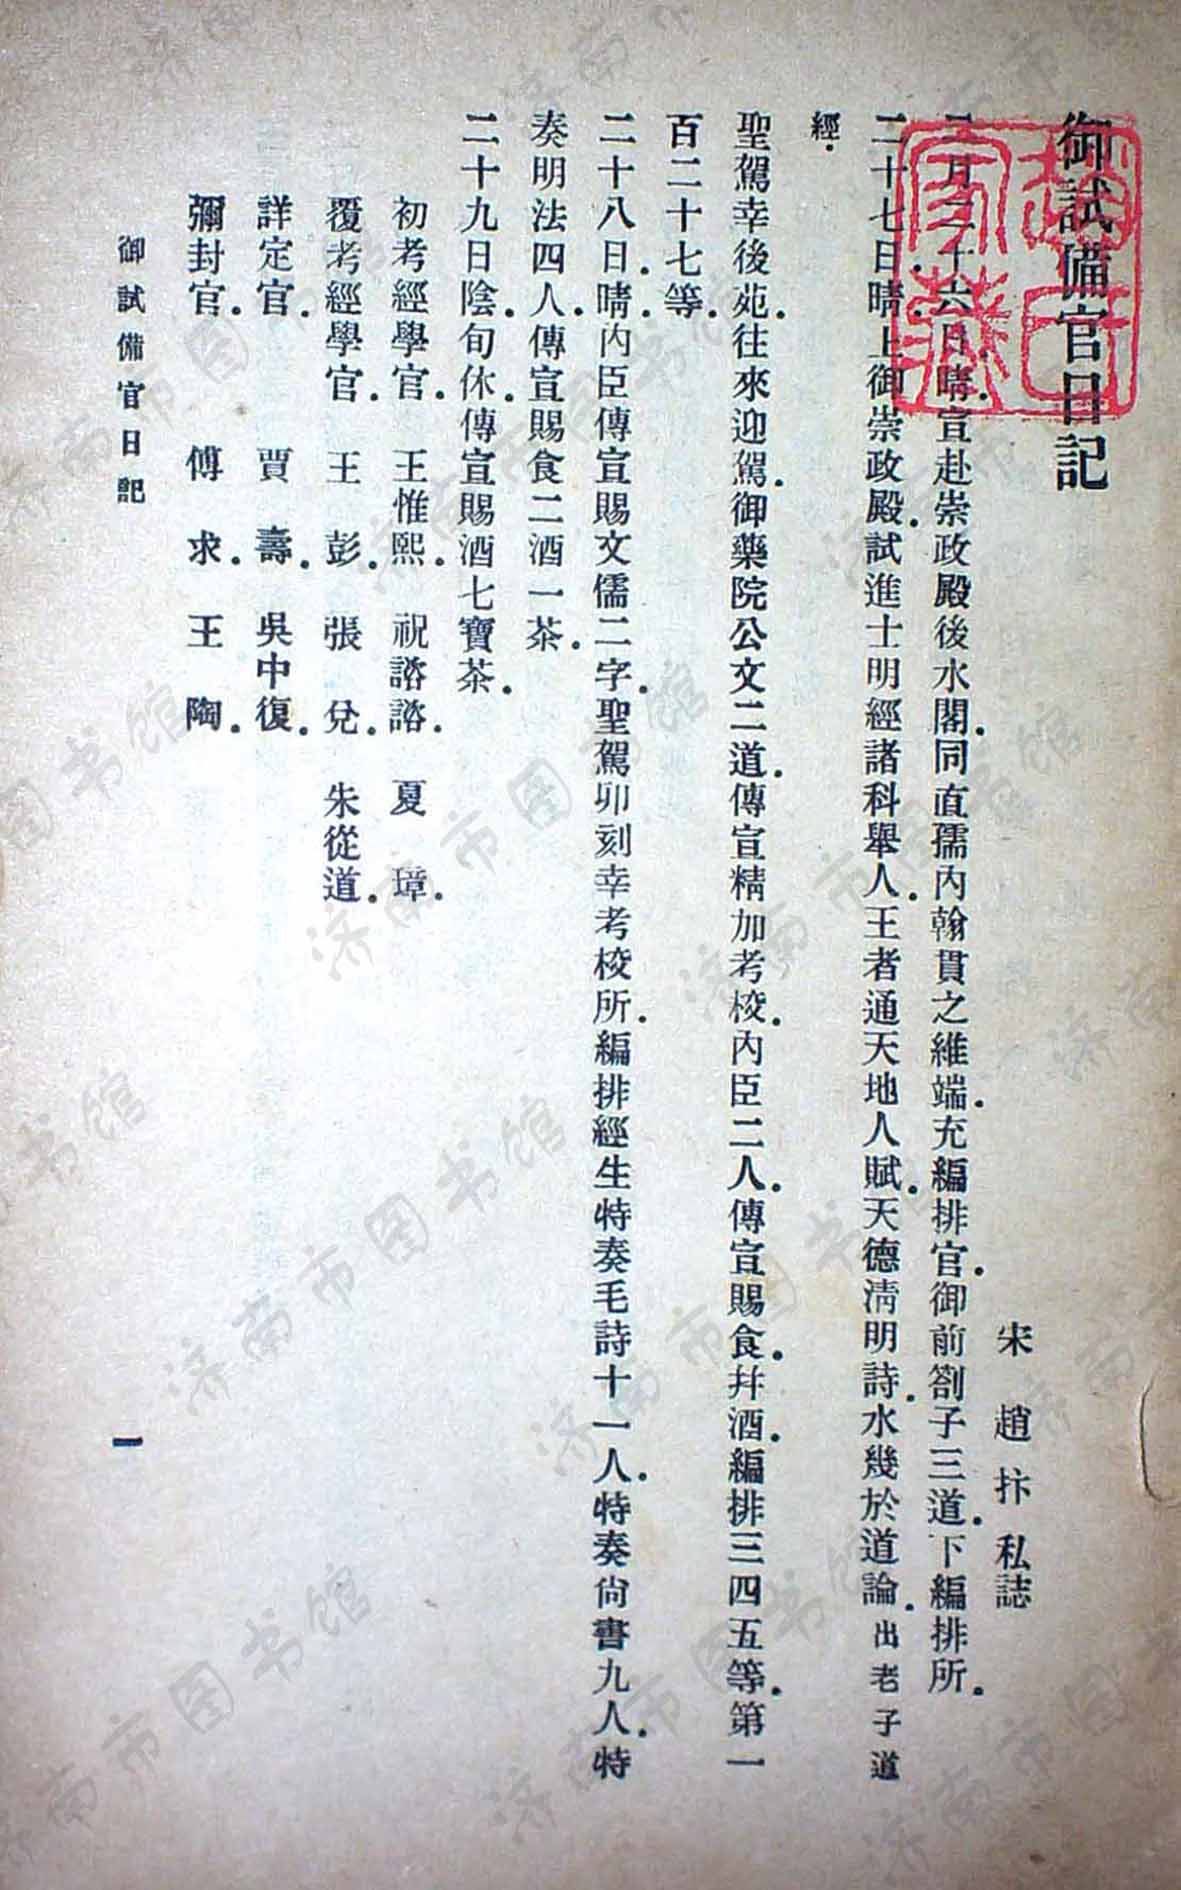 御試備官日記
宋趙抃私誌
二月二十六日.晴.宣赴崇政殿後水閣.同直孺內翰貫之維端.充編排官.御前劄子三道.下編排所.
二十七日.晴.上御崇政殿.試進士明經諸科舉人.王者通天地人賦.天德淸明詩.水幾於道論.出老子道
經.
聖駕幸後苑.往來迎駕.御藥院公文二道.傳宣精加考校.內臣二人.傳宣賜食.幷酒.編排三四五等.第一
百二十七等.
二十八日.晴.內臣傳宣賜文儒二字.聖駕卯刻幸考校所.編排經生特奏毛詩十一人.特奏尙書九人.特
奏明法四人.傳宣賜食二酒一茶.
二十九日陰.旬休.傳宣賜酒七寶茶.
初考經學官.王惟熙.祝諮諮.夏璋.
覆考經學官.王彭.張兌.朱從道.
詳定官.賈壽.吳中復.
彌封官.傅求.王陶.
御試備官日記
一